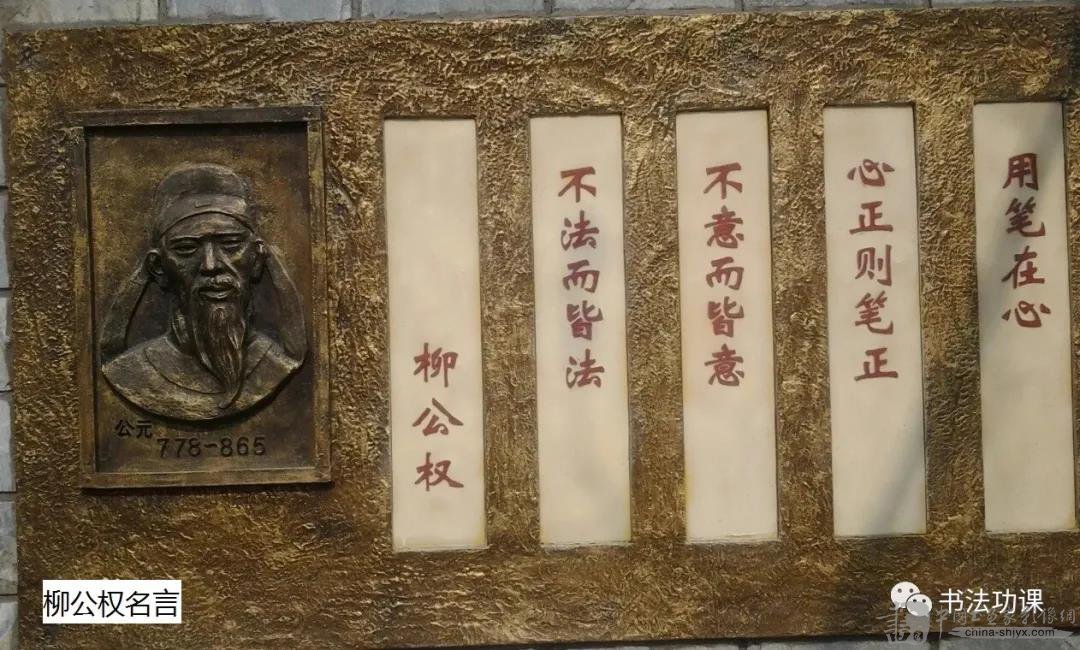 用笔在心
心正则笔正
不意而皆意
不法而皆法
柳公权
公元
778-865
柳公权名言
书法功课
china-shjyx.com